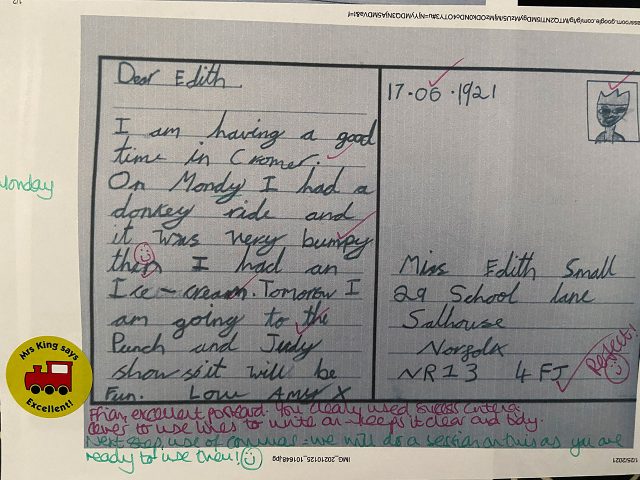 Dear Edith
I am having a good
time in Cromer.
On Mondy I had a
donkey ride and
it was very bumpy
then I had an
Ice-cream. Tomorow I
am going to the
Punch and Judy
show so it will be
Fun. Love Amy X
17.06.1921
Miss Edith Small
29 School lane
Salhouse
Norfolk
NR13 4FJ
Perfect!
Monday
Mrs King says
Excellent!
excellent postcard. You clearly used success criteria
clever to use lines to write on - keeps it clear and tidy.
Next step, use of commas - we will do a session on this as you are
ready to use them!
IMG_20210125_101648.jpg
1/25/2021
1/2